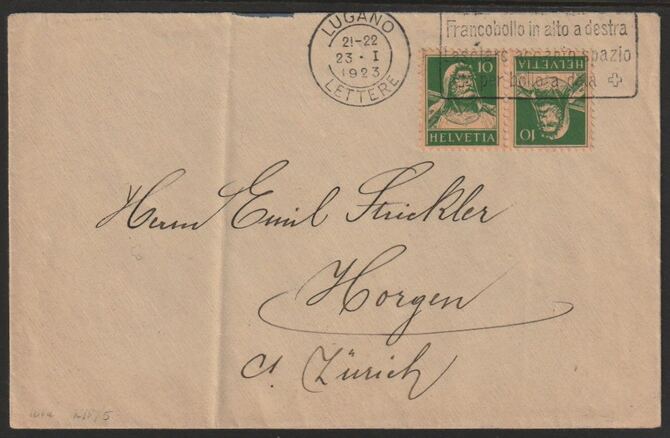 LUGANO
21-22
23 · I
1923
LETTERE
Francobollo in alto a destra
spazio
per bollo a data
10
HELVETIA
10
HELVETIA
Herrn Emil Strickler
Horgen
Ct. Zürich